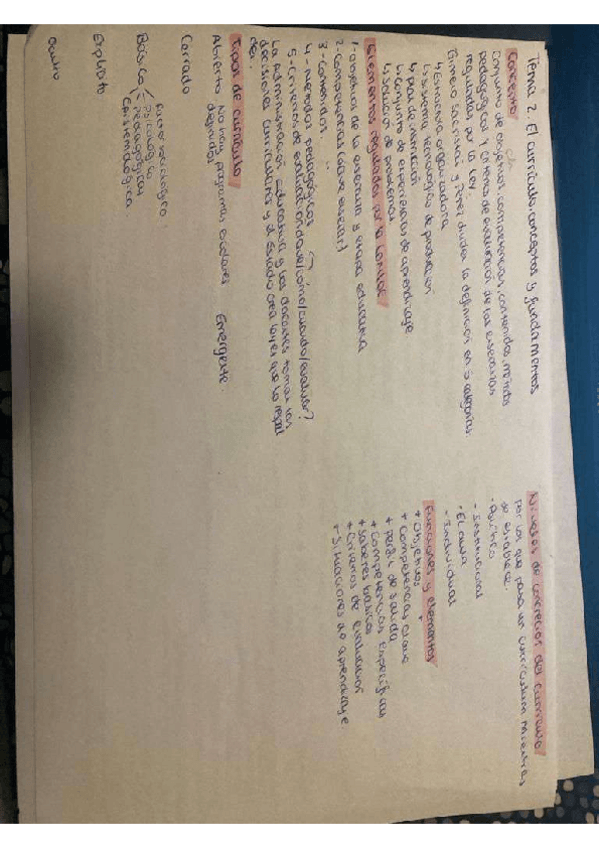 Tema 2. El currículo, conceptos y fundamentos
Concepto
Conjunto de objetivos, competencias, contenidos, métodos
pedagógicos y criterios de evaluación de las enseñanzas
reguladas por la ley.
Gimeno Sacristán y Pérez dividen la definición en 5 categorías.
↳ Estructura organizadora
↳ sistema tecnológico de producción
↳ plan de instrucción
↳ conjunto de experiencias de aprendizaje
↳ solución de problemas
Elementos regulados por la
1- objetivos de la enseñanza y etapa educativa
2- competencias (clave
3- contenidos
4- métodos pedagógicos
5- Criterios de evaluación /cómo/cuándo/evaluar?
La administración educativa y los docentes toman las
decisiones curriculares y el Estado crea leyes que lo
Tipos de currículo
Abierto No hay programas escolares
Emergente.
Cerrado
Básico Psicológica
Pedagógica
Epistemológica
Explícito
Oculto
Niveles de concreción del currículo
por los que pasa un curriculum mientras
se establece.
- Político
- Institucional
- El aula
- Individual
Funciones y elementos
+ Objetivos
+ Competencias clave
+ perfil de salida
+ Competencias Específicas
+ saberes básicos
+ Criterios de evaluación
+ Situaciones de aprendizaje.